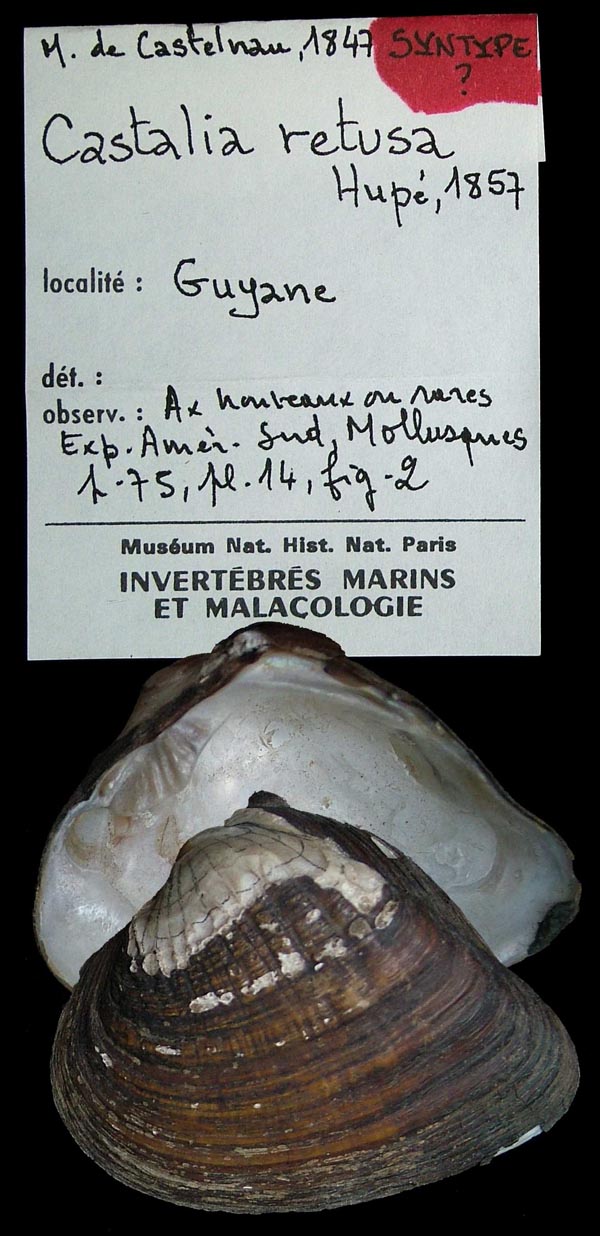 M. de Castelnau, 1847 SYNTYPE
?
Castalia retusa
Hupé, 1857
localité : Guyane
dét. :
observ. : Ax nouveaux ou rares
Exp. Amér. Sud, Mollusques
p. 75, pl. 14, fig. 2
Muséum Nat. Hist. Nat. Paris
INVERTÉBRÉS MARINS
ET MALACOLOGIE